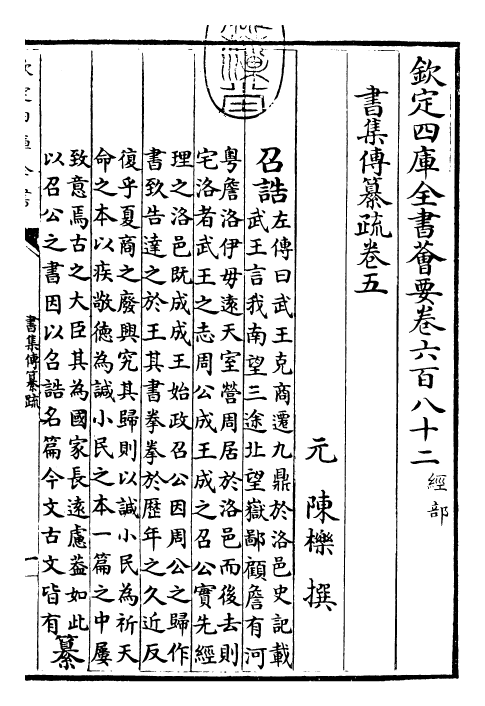 欽定四庫全書薈要卷六百八十二 經部
書集傳纂疏卷五
元 陳櫟 撰
召誥 左傳曰武王克商遷九鼎於洛邑史記載
武王言我南望三途北望嶽鄙顧詹有河
粤詹洛伊毋遠天室營周居於洛邑而後去則
宅洛者武王之志周公成王成之召公實先經
理之洛邑既成成王始政召公因周公之歸作
書致告達之於王其書拳拳於歷年之久近反
復乎夏商之廢興究其歸則以諴小民為祈天
命之本以疾敬德為諴小民之本一篇之中屢
致意焉古之大臣其為國家長遠慮葢如此
以召公之書因以召誥名篇今文古文皆有
纂
欽定四庫全書
書集傳纂疏
一